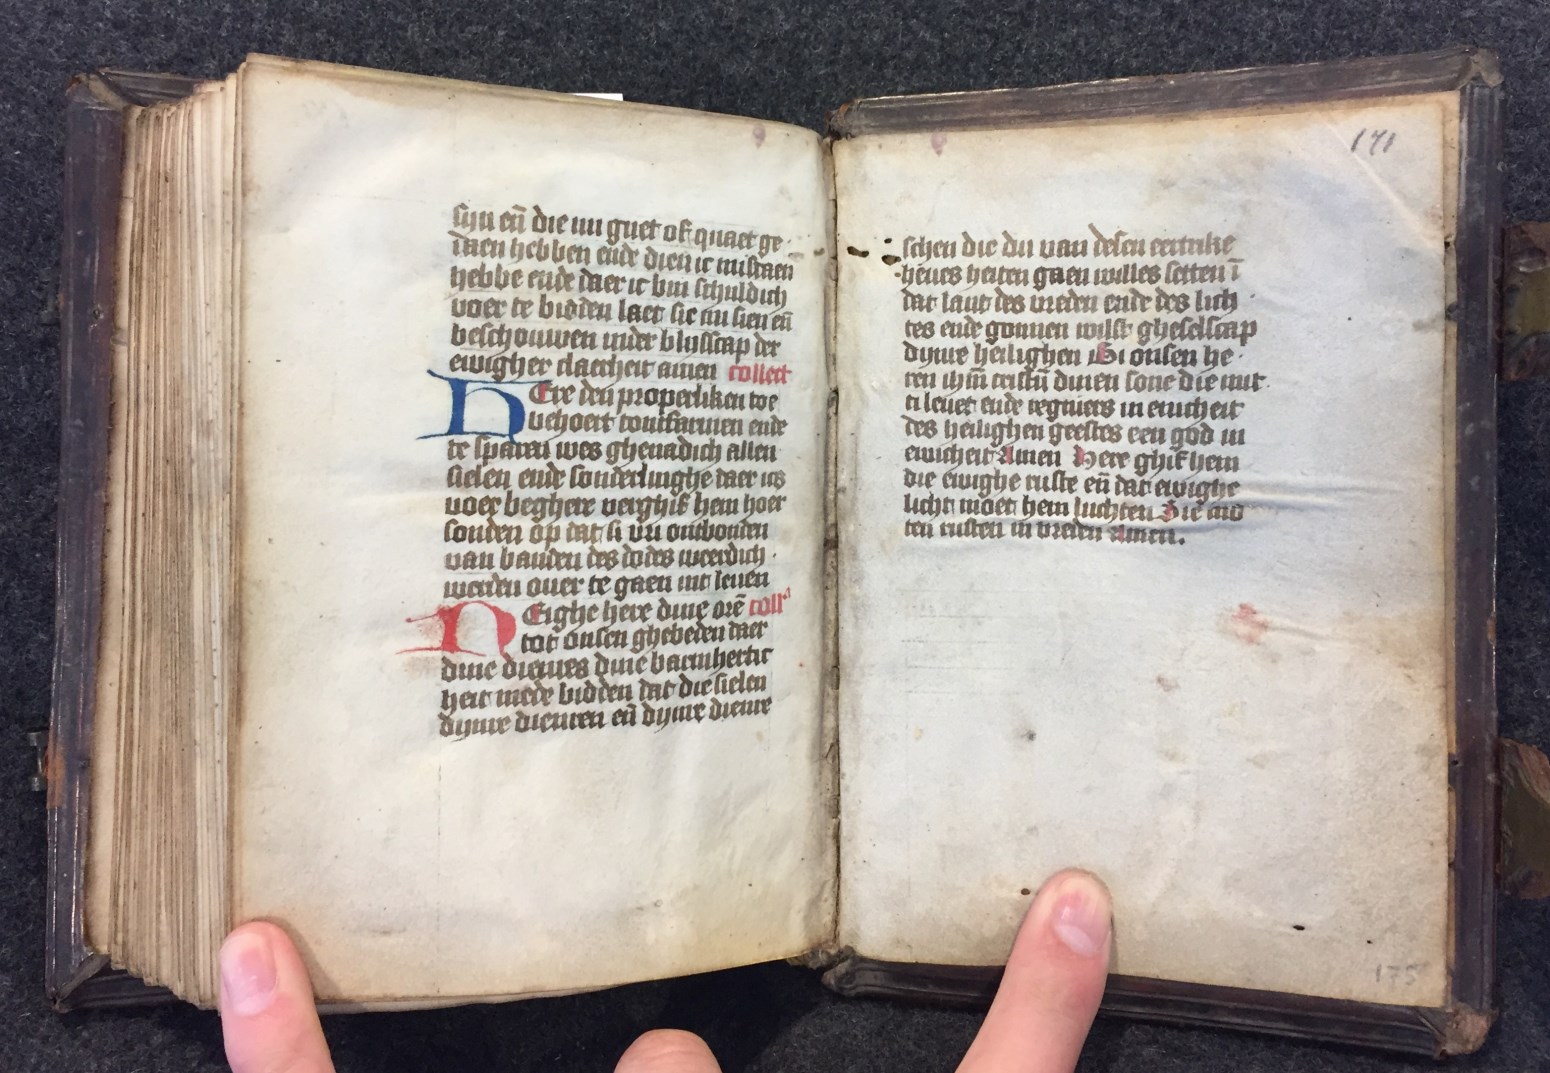 sijn eñ die mi guet of quaet ge
daen hebben ende dien ic misdaen
hebbe ende daer ic bin schuldich
voer te bidden laet sie mi sien eñ
beschouwen inder blijsscap der
ewigher claerheit amen collect
HEre den properliken toe
behoert te ontfarmen ende
te sparen wes ghenadich allen
sielen ende sonderlinghe daer ic
voer beghere verghif hem hoer
sonden op dat si vri ontbonden
van banden des dodes weerdich
werden ouer te gaen int leuen
NEighe here dine orẽ coll'
tot onsen ghebeden daer
dine diewes dine barmhertic
heit mede bidden dat die sielen
dijnre dienren eñ dijnre dienre
171
schen die du van desen eertrike
heues heiten gaen willes setten ĩ
dat lant des vreden ende des lich
tes ende gonnen wilst gheselscap
dijnre heilighen Bi onsen he
ren ihm̃ cristũ dinen sone die mit
ti leuet ende regniers in enicheit
des heilighen geestes een god in
ewicheit Amen Here ghif hem
die ewighe ruste eñ dat ewighe
licht moet hem luchten Sie mo
ten rusten in vreden Amen.
175